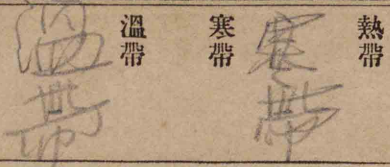 熱帶
寒帶
寒帶
溫帶
溫帶